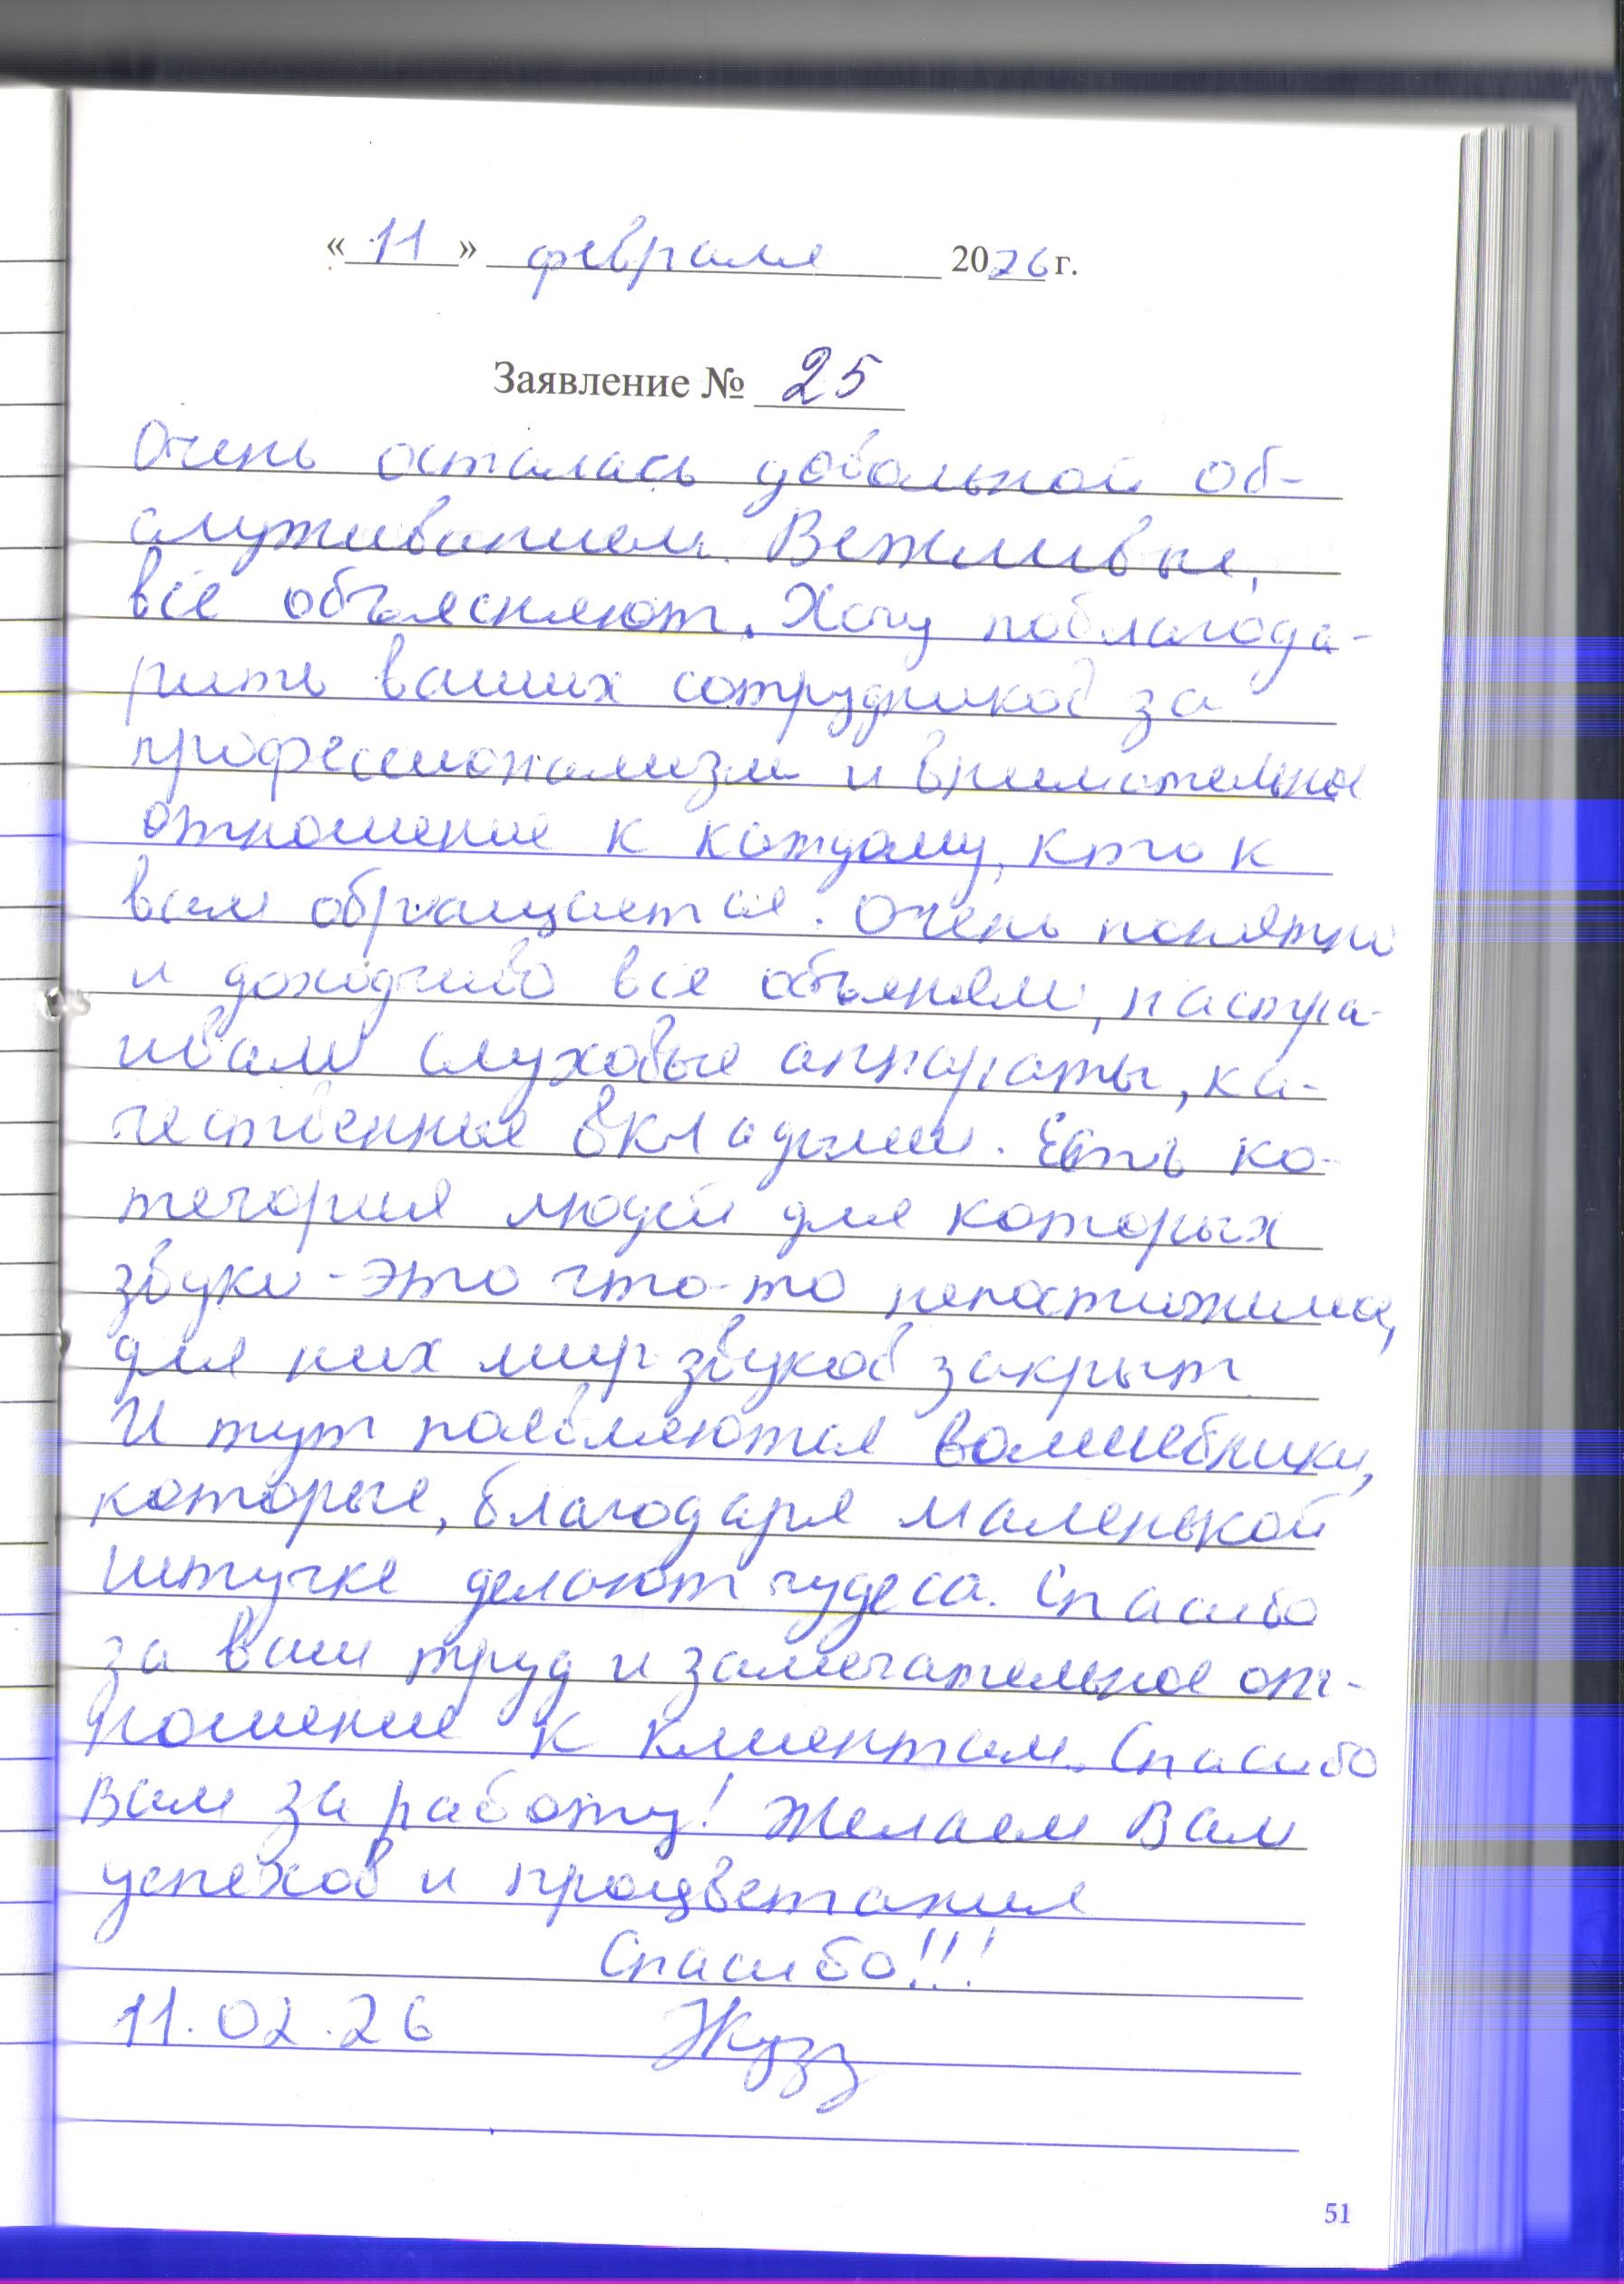 « 11 » февраля 2026 г.
Заявление № 25
Очень осталась довольной об-
служиванием. Вежливые,
всё объясняют. Хочу поблагода-
рить ваших сотрудников за
профессионализм и внимательное
отношение к каждому, кто к
вам обращается. Очень понятно
и доходчиво все объясняли, настра-
ивали слуховые аппараты, ка-
чественные вкладыши. Есть ка-
тегория людей для которых
звуки - это что-то непостижимое,
для них мир звуков закрыт
И тут появляются волшебники,
которые, благодаря маленькой
штучке делают чудеса. Спасибо
за ваш труд и замечательное от-
ношение к клиентам. Спасибо
Вам за работу! Желаем Вам
успехов и процветания
Спасибо!!!
11.02.26
51